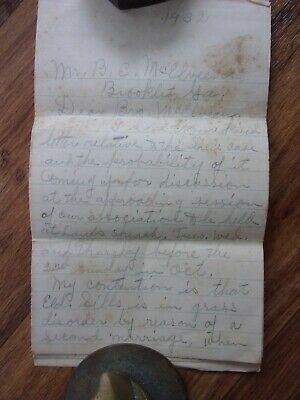 1932
Mr. B. C. McElveen
Brooklet Ga.
Dear Bro
your kind
letter relative to the case
and the probability of it
coming up for discussion
at the approaching session
of our association to be held
at Tues. Wed.
and Thursday before the
3rd Sunday in Oct.
My contention is that
Eld. Sills is in gross
disorder by reason of a
second marriage, when